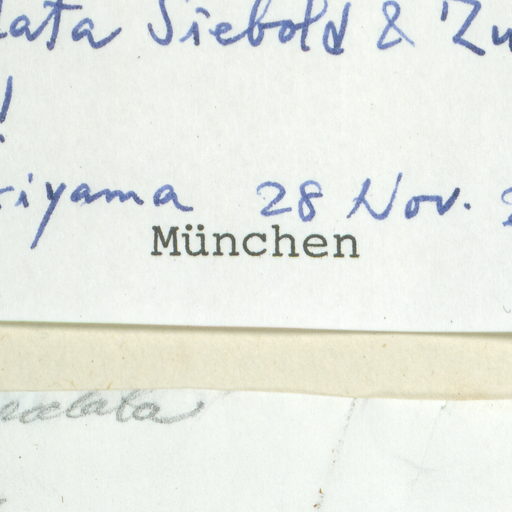 lata Siebold & Zu
!
iyama 28 Nov. 2
München